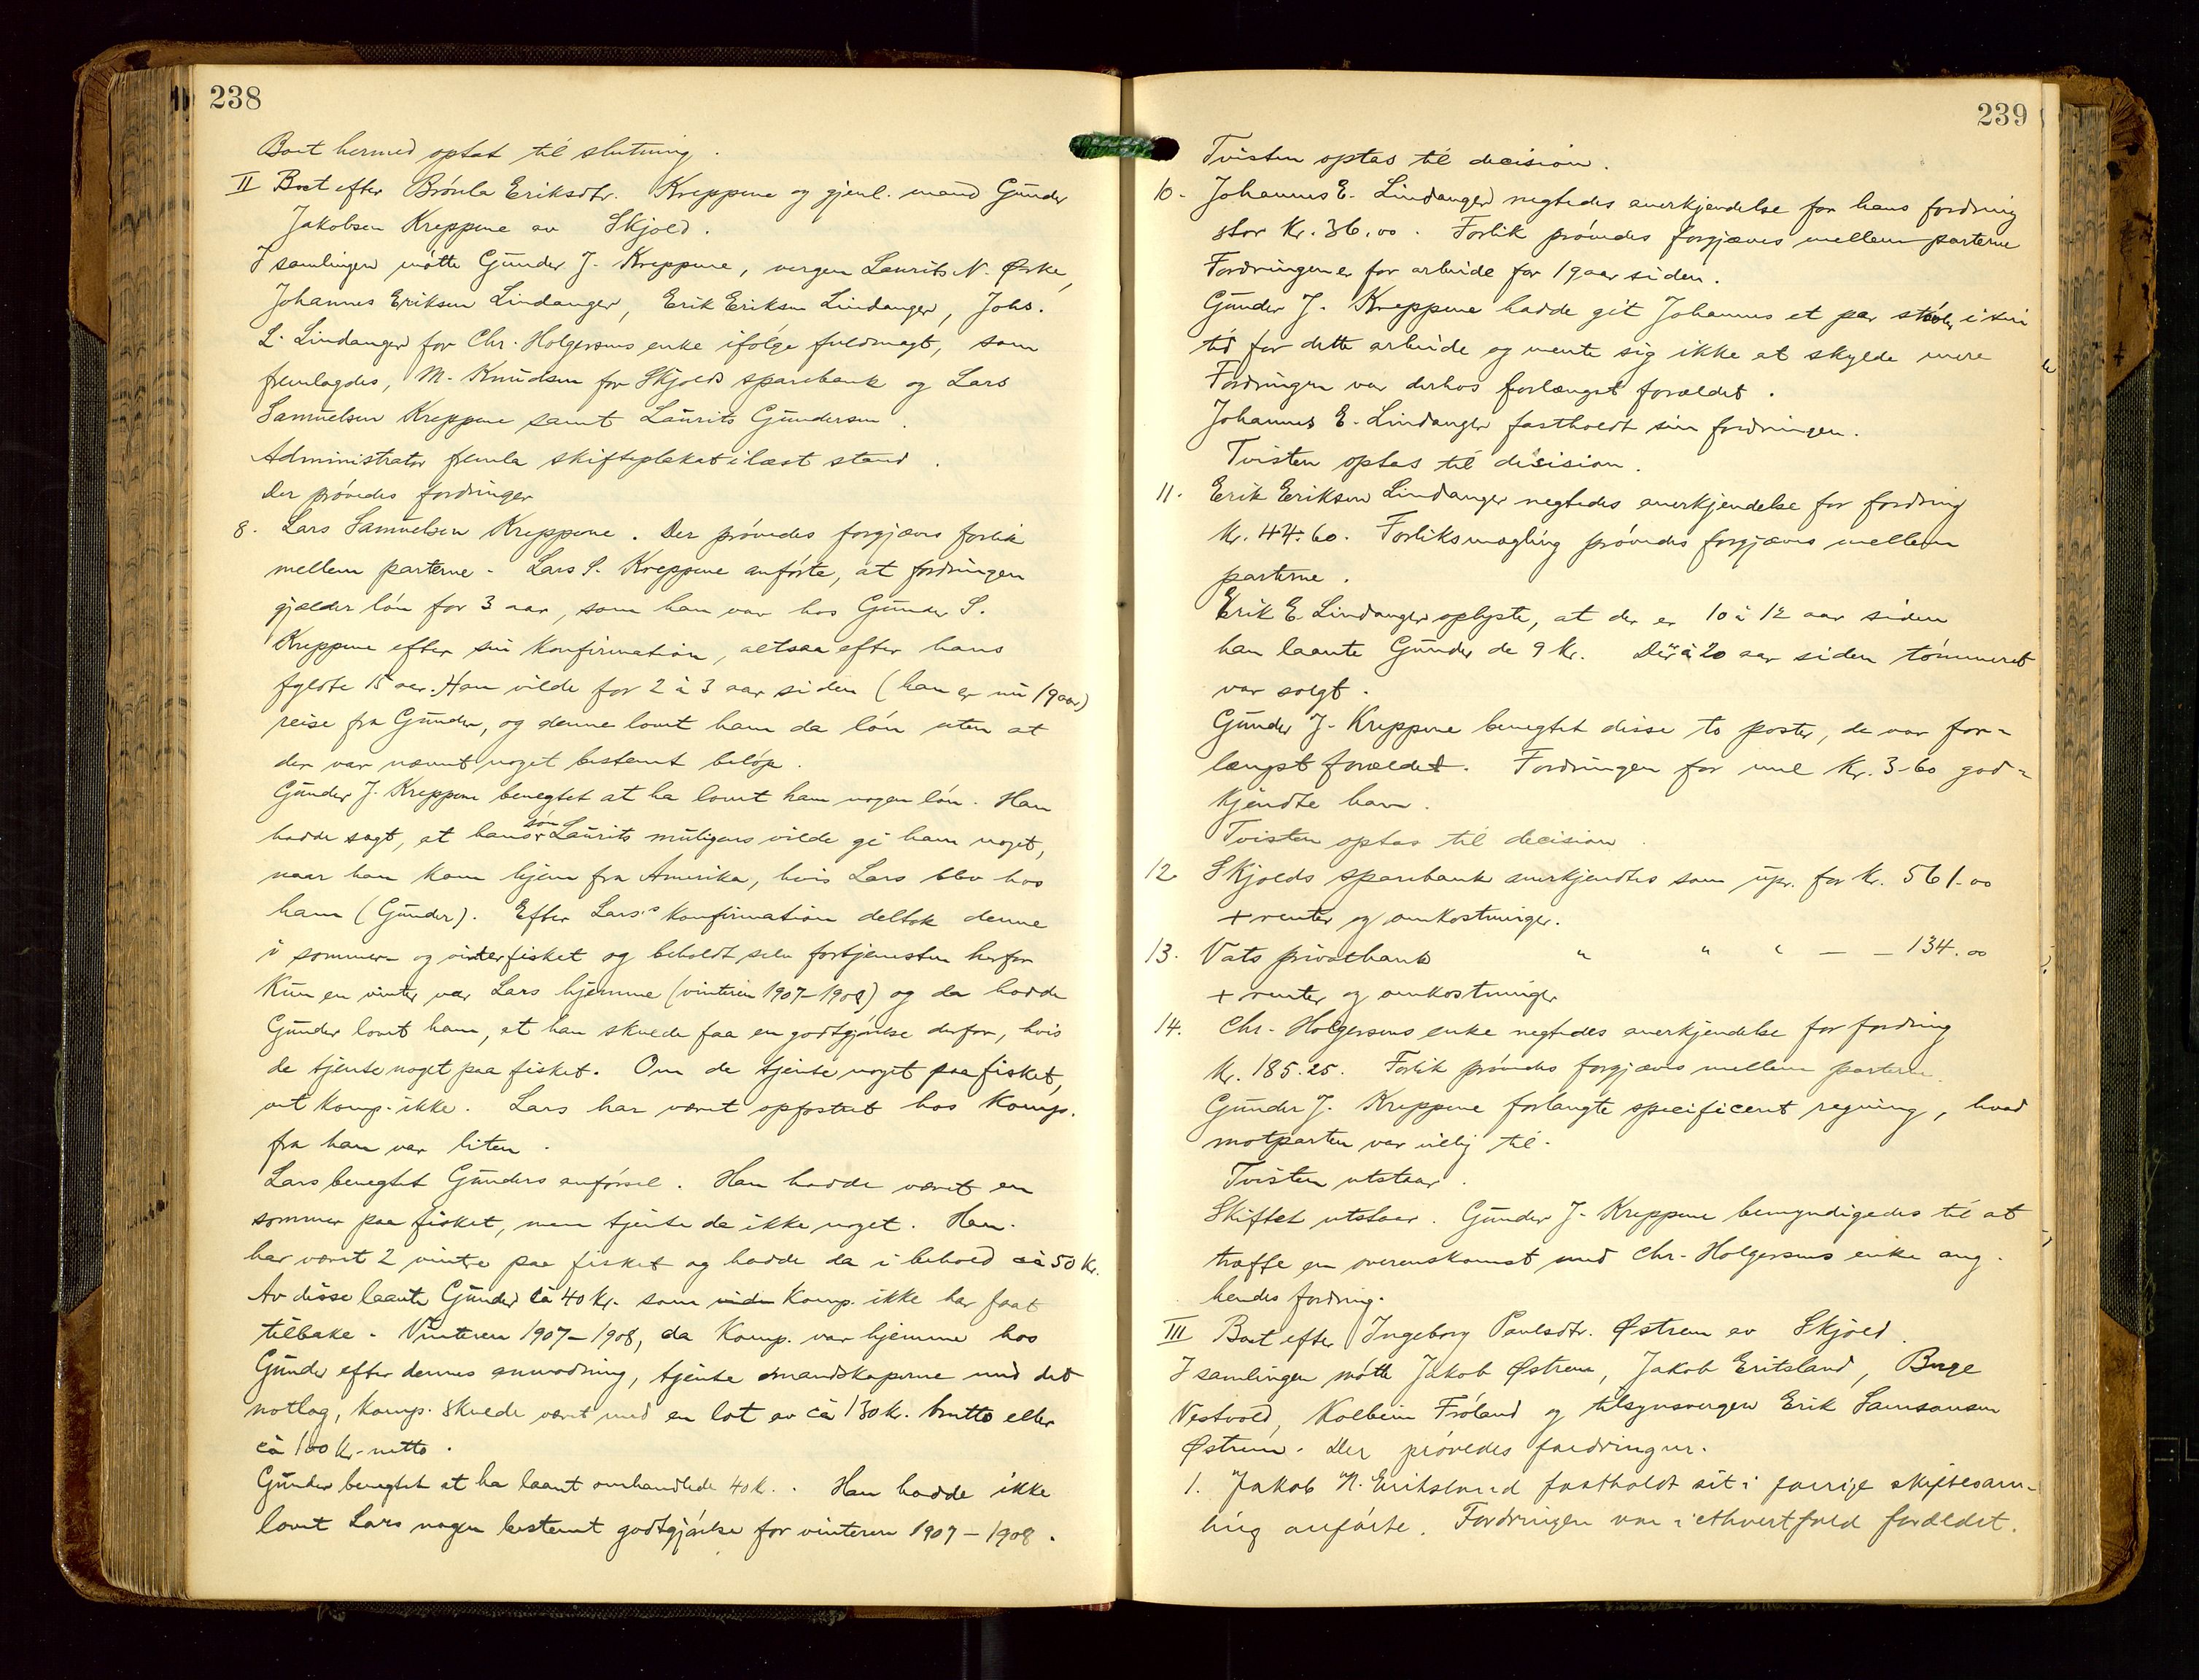 238
Boet hermed optat til slutning.
II Boet efter Brónla Eriksdtr. Kreppene og gjenl. mand Gunder
Jakobsen Kreppene av Skjold.
I samlingen mótte Gunder J. Kreppene, vergen Laurits N. Ørke,
Johannes Eriksen Lindanger, Erik Eriksen Lindanger, Johs.
L. Lindanger for Chr. Holgersens enke ifólge fuldmagt, som
fremlagdes, M. Knudsen for Skjolds sparebank og Lars
Samuelsen Kreppene samt Laurits Gundersen.
Administrator fremla skifteplakat i læst stand.
Der próvedes fordringer
8. Lars Samuelsen Kreppene. Der próvedes forgjæves forlik
mellem parterne. Lars S. Kreppene anfórte, at fordringen
gjælder lón for 3 aar, som han var hos Gunder S.
Kreppene efter sin Konfirmation, altsaa efter hans
fyldte 15 aar. Han vilde for 2 à 3 aar siden (han er nu 19 aar)
reise fra Gunder, og denne lovet ham da lón uten at
der var nævnt noget bestemt beløp.
Gunder J. Kreppene benegtet at ha lovet ham nogen lón. Han
hadde sagt, at hans són Laurits muligens vilde gi ham noget,
naar han kom hjem fra Amerika, hvis Lars blev hos
ham (Gunder). Efter Lars's Konfirmation deltok denne
i sommer- og vinterfisket og beholdt selv fortjenesten herfor
Kun en vinter var Lars hjemme (vinteren 1907-1908) og da hadde
Gunder lovet ham, at han skulde faa en godtgjórelse derfor, hvis
de tjente noget paa fisket. Om de tjente noget paa fisket,
vet Komp. ikke. Lars har været opfostret hos Komp.
fra han var liten.
Lars benegtet Gunders anfórsel. Han hadde været en
sommer paa fisket, men tjente da ikke noget. Han
har været 2 vintre paa fisket og hadde da i behold ca 50 Kr.
Av disse laante Gunder ca 40 Kr. som Komp. ikke har faat
tilbake. Vinteren 1907-1908, da Komp. var hjemme hos
Gunder efter dennes anmodning, tjente mandskaperne med det
notlag, Komp. skulde været med en lot av ca 130 k. brutto eller
ca 100 K. netto.
Gunder benegtet at ha laant omhandlede 40 k. Han hadde ikke
lovet Lars nogen bestemt godtgjórelse for vinteren 1907-1908.
239
Tvisten optas til decision.
10. Johannes E. Lindanger negtedes anerkjendelse for hans fordring
stor Kr. 36.00. Forlik próvedes forgjæves mellem parterne
Fordringen er for arbeide for 19 aar siden.
Gunder J. Kreppene hadde git Johannes et par stóvler i sin
tid for dette arbeide og mente sig ikke at skylde mere
Fordringen var derhos forlængst forældet.
Johannes E. Lindanger fastholdt sin fordringen.
Tvisten optas til decision.
11. Erik Eriksen Lindanger negtedes anerkjendelse for fordring
Kr. 44.60. Forliksmægling próvedes forgjæves mellem
parterne.
Erik E. Lindanger oplyste, at der er 10 à 12 aar siden
han laante Gunder de 9 kr. Der er 20 aar siden tómmeret
var solgt.
Gunder J. Kreppene benegtet disse to poster, de var for-
længst forældet. Fordringen for mel Kr. 3.60 god-
kjendte han.
Tvisten optas til decision.
12. Skjolds sparebank anerkjendtes som upr. for Kr. 561.00
+ renter og omkostninger.
13. Vats privatbank " " " — — 134.00
+ renter og omkostninger
14. Chr. Holgersens enke negtedes anerkjendelse for fordring
Kr. 185.25. Forlik próvedes forgjæves mellem parterne.
Gunder J. Kreppene forlangte specificeret regning, hvad
motparten var villig til.
Tvisten utstaar.
Skiftet utstaar. Gunder J. Kreppene bemyndigedes til at
træffe en overenskomst med Chr. Holgersens enke ang.
hendes fordring.
III Boet efter Ingeborg Paulsdtr. Østrem av Skjold.
I samlingen mótte Jakob Østrem, Jakob Eritsland, Børge
Vestvold, Kolbein Fróland og tilsynsvergen Erik Samsonsen
Østrem. Der próvedes fordringer.
1. Jakob N. Eritsland fastholdt sit i forrige skiftesam-
ling anfórte. Fordringen var i ethvertfald forældet.